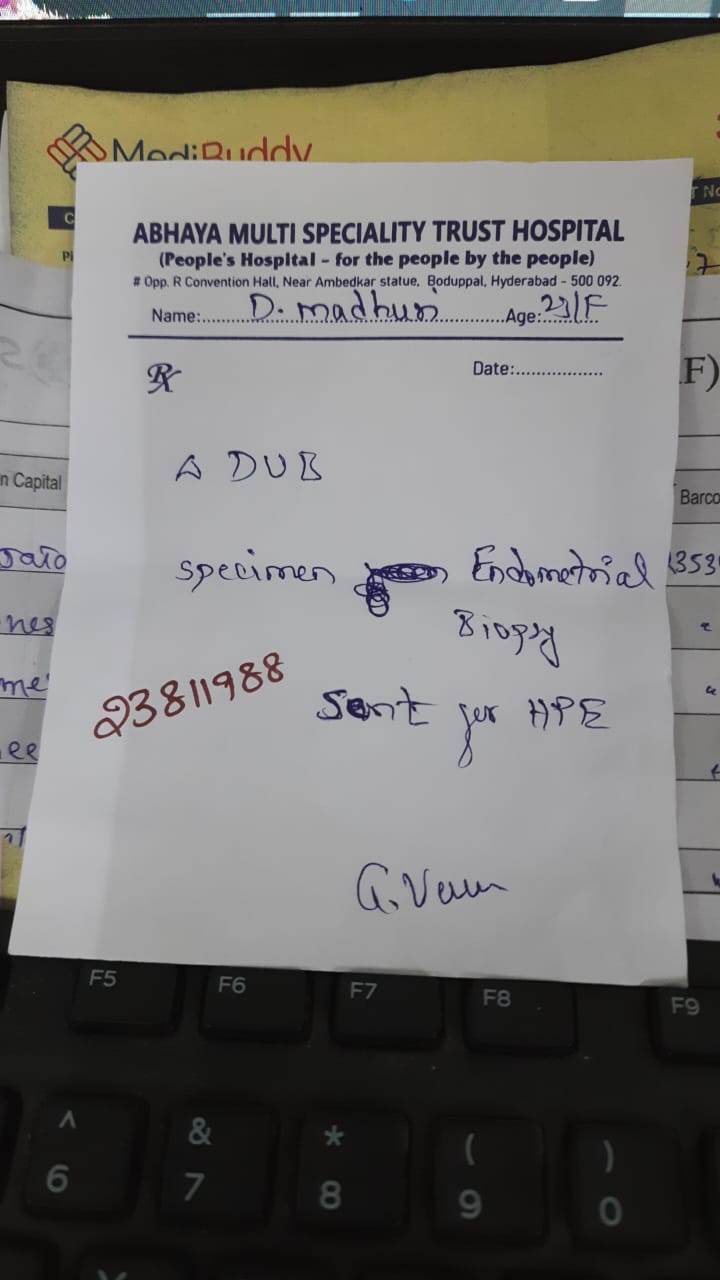 MediBuddy
ABHAYA MULTI SPECIALITY TRUST HOSPITAL
(People's Hospital - for the people by the people)
# Opp. R Convention Hall, Near Ambedkar statue, Boduppal, Hyderabad - 500 092.
Name: D. madhuri Age: 23/F
Rx
Date:
F)
n Capital
Barco
Δ DUB
specimen Endometrial
353
Biopsy
23811988
Sent for HPE
nes
me
ee
F5 F6 F7 F8 F9
^ & * ( )
6 7 8 9 0